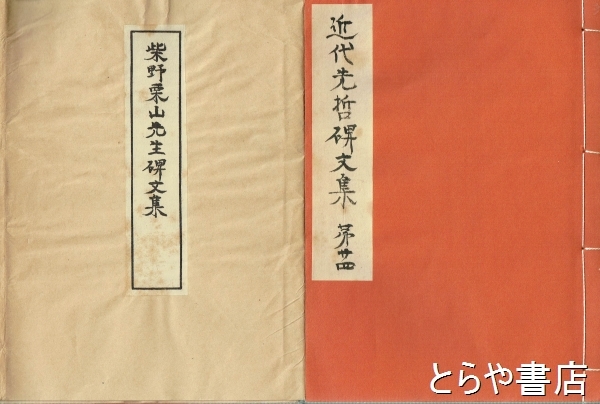 近代先哲碑文集 第廿四
柴野栗山先生碑文集
とらや書店